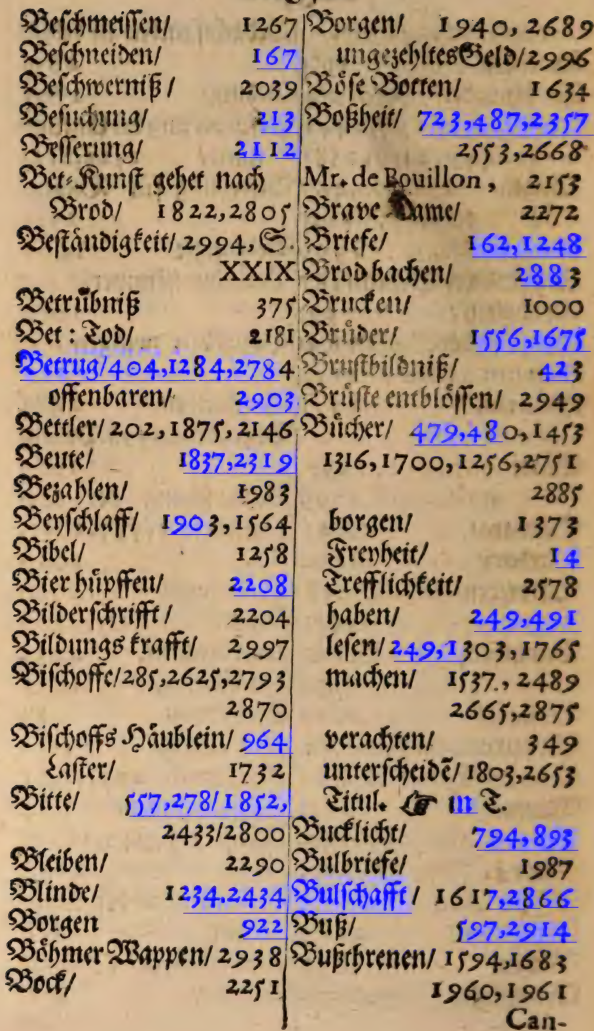 Beschmeissen/ 1267
Beschneiden/ 167
Beschwerniß/ 2039
Besuchung/ 213
Besserung/ 2112
Bet-Kunst gehet nach
Brod/ 1822,2805
Beständigkeit/ 2994, S.
XXIX
Betrübniß 375
Bet: Tod/ 2181
Betrug/404,1284,2784
offenbaren/ 2903
Bettler/ 202,1875,2146
Beute/ 1837,2319
Bezahlen/ 1983
Beyschlaff/ 1903,1564
Bibel/ 1258
Bier hüpffen/ 2208
Bilderschrifft/ 2204
Bildungs krafft/ 2997
Bischoffe/285,2625,2793
2870
Bischoffs Häublein/ 964
Laster/ 1732
Bitte/ 557,278/1852,
2433/2800
Bleiben/ 2290
Blinde/ 1234.2434
Borgen 922
Böhmer Wappen/ 2938
Bock/ 2251
Borgen/ 1940, 2689
ungezehltes Geld/2996
Böse Botten/ 1634
Boßheit/ 723,487,2357
2553,2668
Mr. de Bouillon, 2153
Brave Dame/ 2272
Briefe/ 162,1248
Brod bachen/ 2883
Brucken/ 1000
Brüder/ 1556,1675
Brustbildniß/ 423
Brüste entblössen/ 2949
Bücher/ 479,480,1453
1316,1700,1256,2751
2885
borgen/ 1373
Freyheit/ 14
Trefflichkeit/ 2578
haben/ 249,491
lesen/ 249,1303,1765
machen/ 1537., 2489
2665,2875
verachten/ 349
unterscheidẽ/ 1803,2653
Titul. ☞ in T.
Bucklicht/ 794,893
Bulbriefe/ 1987
Bulschafft/ 1617,2866
Buß/ 597,2914
Bußthrenen/ 1594,1683
1960,1961
Can-